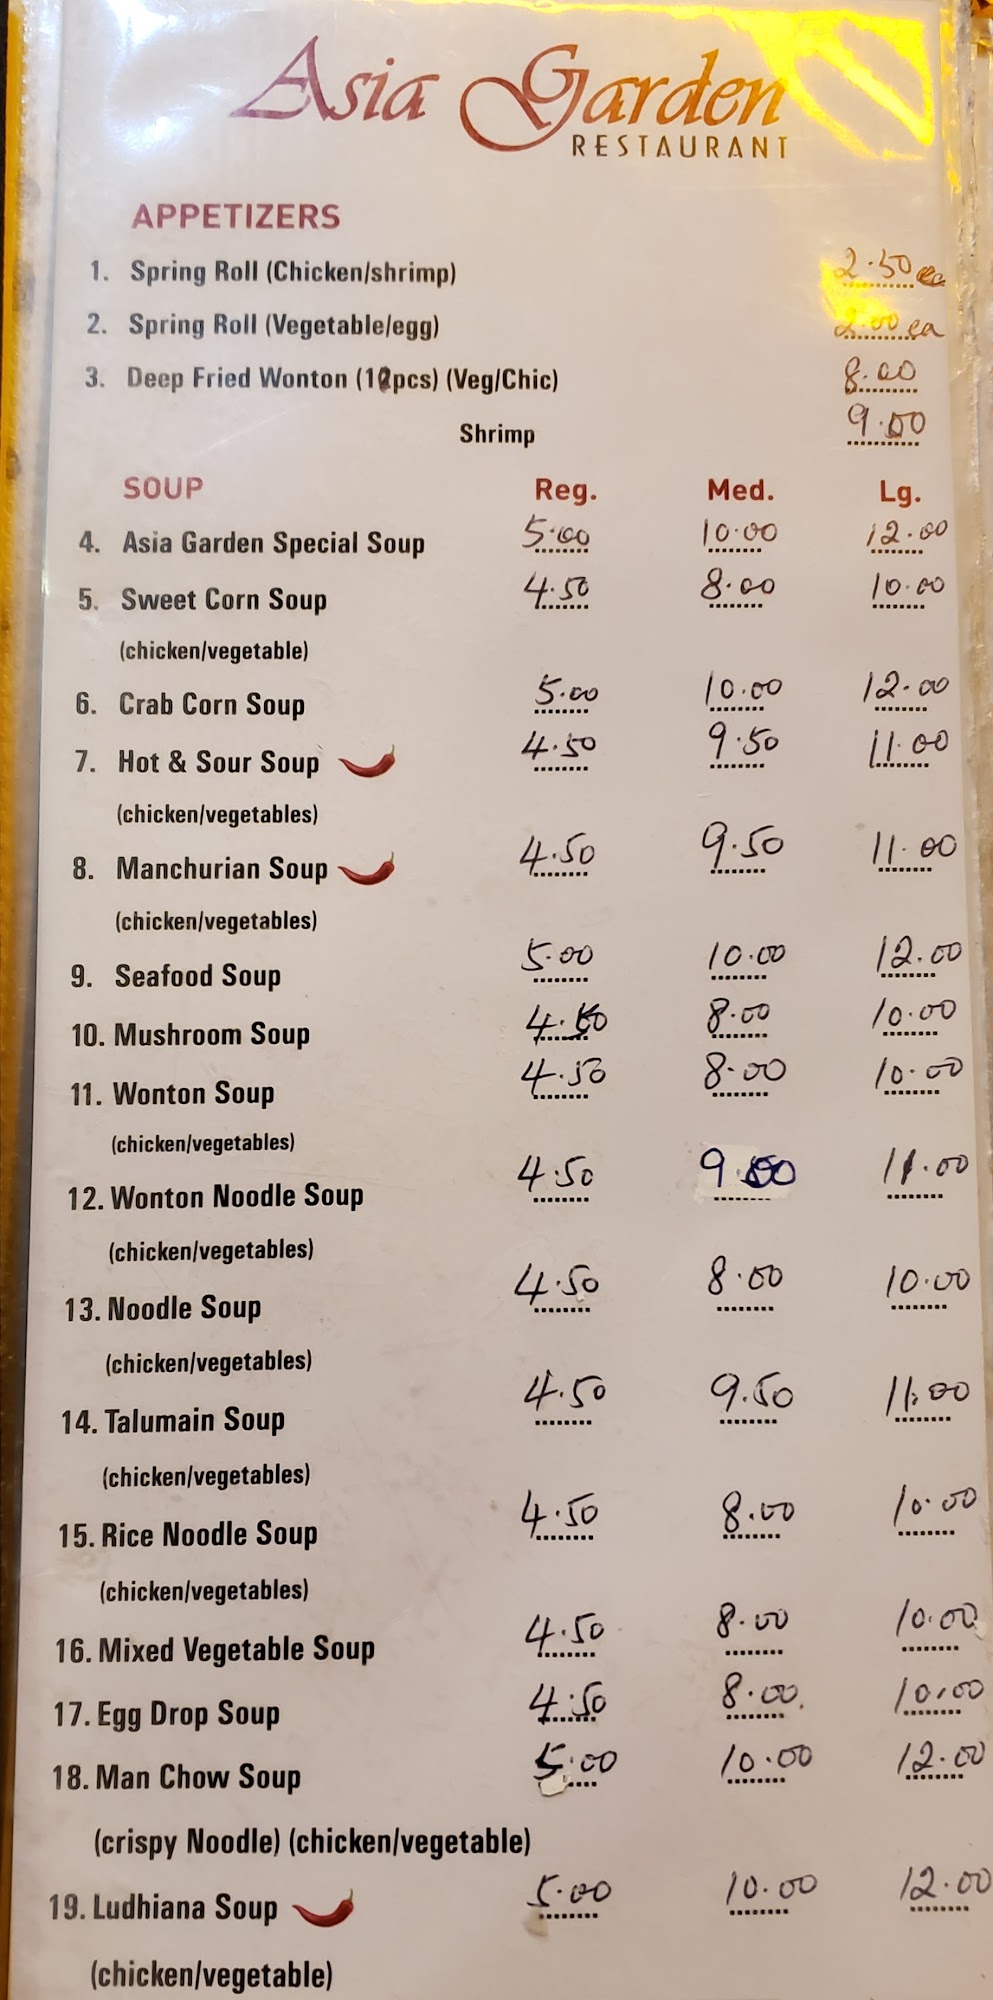 Asia Garden
RESTAURANT
APPETIZERS
1. Spring Roll (Chicken/shrimp) 2.50 ea
2. Spring Roll (Vegetable/egg) 2.00 ea
3. Deep Fried Wonton (12pcs) (Veg/Chic) 8.00
Shrimp 9.00
SOUP Reg. Med. Lg.
4. Asia Garden Special Soup 5.00 10.00 12.00
5. Sweet Corn Soup 4.50 8.00 10.00
(chicken/vegetable)
6. Crab Corn Soup 5.00 10.00 12.00
7. Hot & Sour Soup 4.50 9.50 11.00
(chicken/vegetables)
8. Manchurian Soup 4.50 9.50 11.00
(chicken/vegetables)
9. Seafood Soup 5.00 10.00 12.00
10. Mushroom Soup 4.50 8.00 10.00
11. Wonton Soup 4.50 8.00 10.00
(chicken/vegetables)
12. Wonton Noodle Soup 4.50 11.00
(chicken/vegetables)
13. Noodle Soup 4.50 8.00 10.00
(chicken/vegetables)
14. Talumain Soup 4.50 9.50 11.00
(chicken/vegetables)
15. Rice Noodle Soup 4.50 8.00 10.00
(chicken/vegetables)
16. Mixed Vegetable Soup 4.50 8.00 10.00
17. Egg Drop Soup 4.50 8.00 10.00
18. Man Chow Soup 5.00 10.00 12.00
(crispy Noodle) (chicken/vegetable)
19. Ludhiana Soup 5.00 10.00 12.00
(chicken/vegetable)